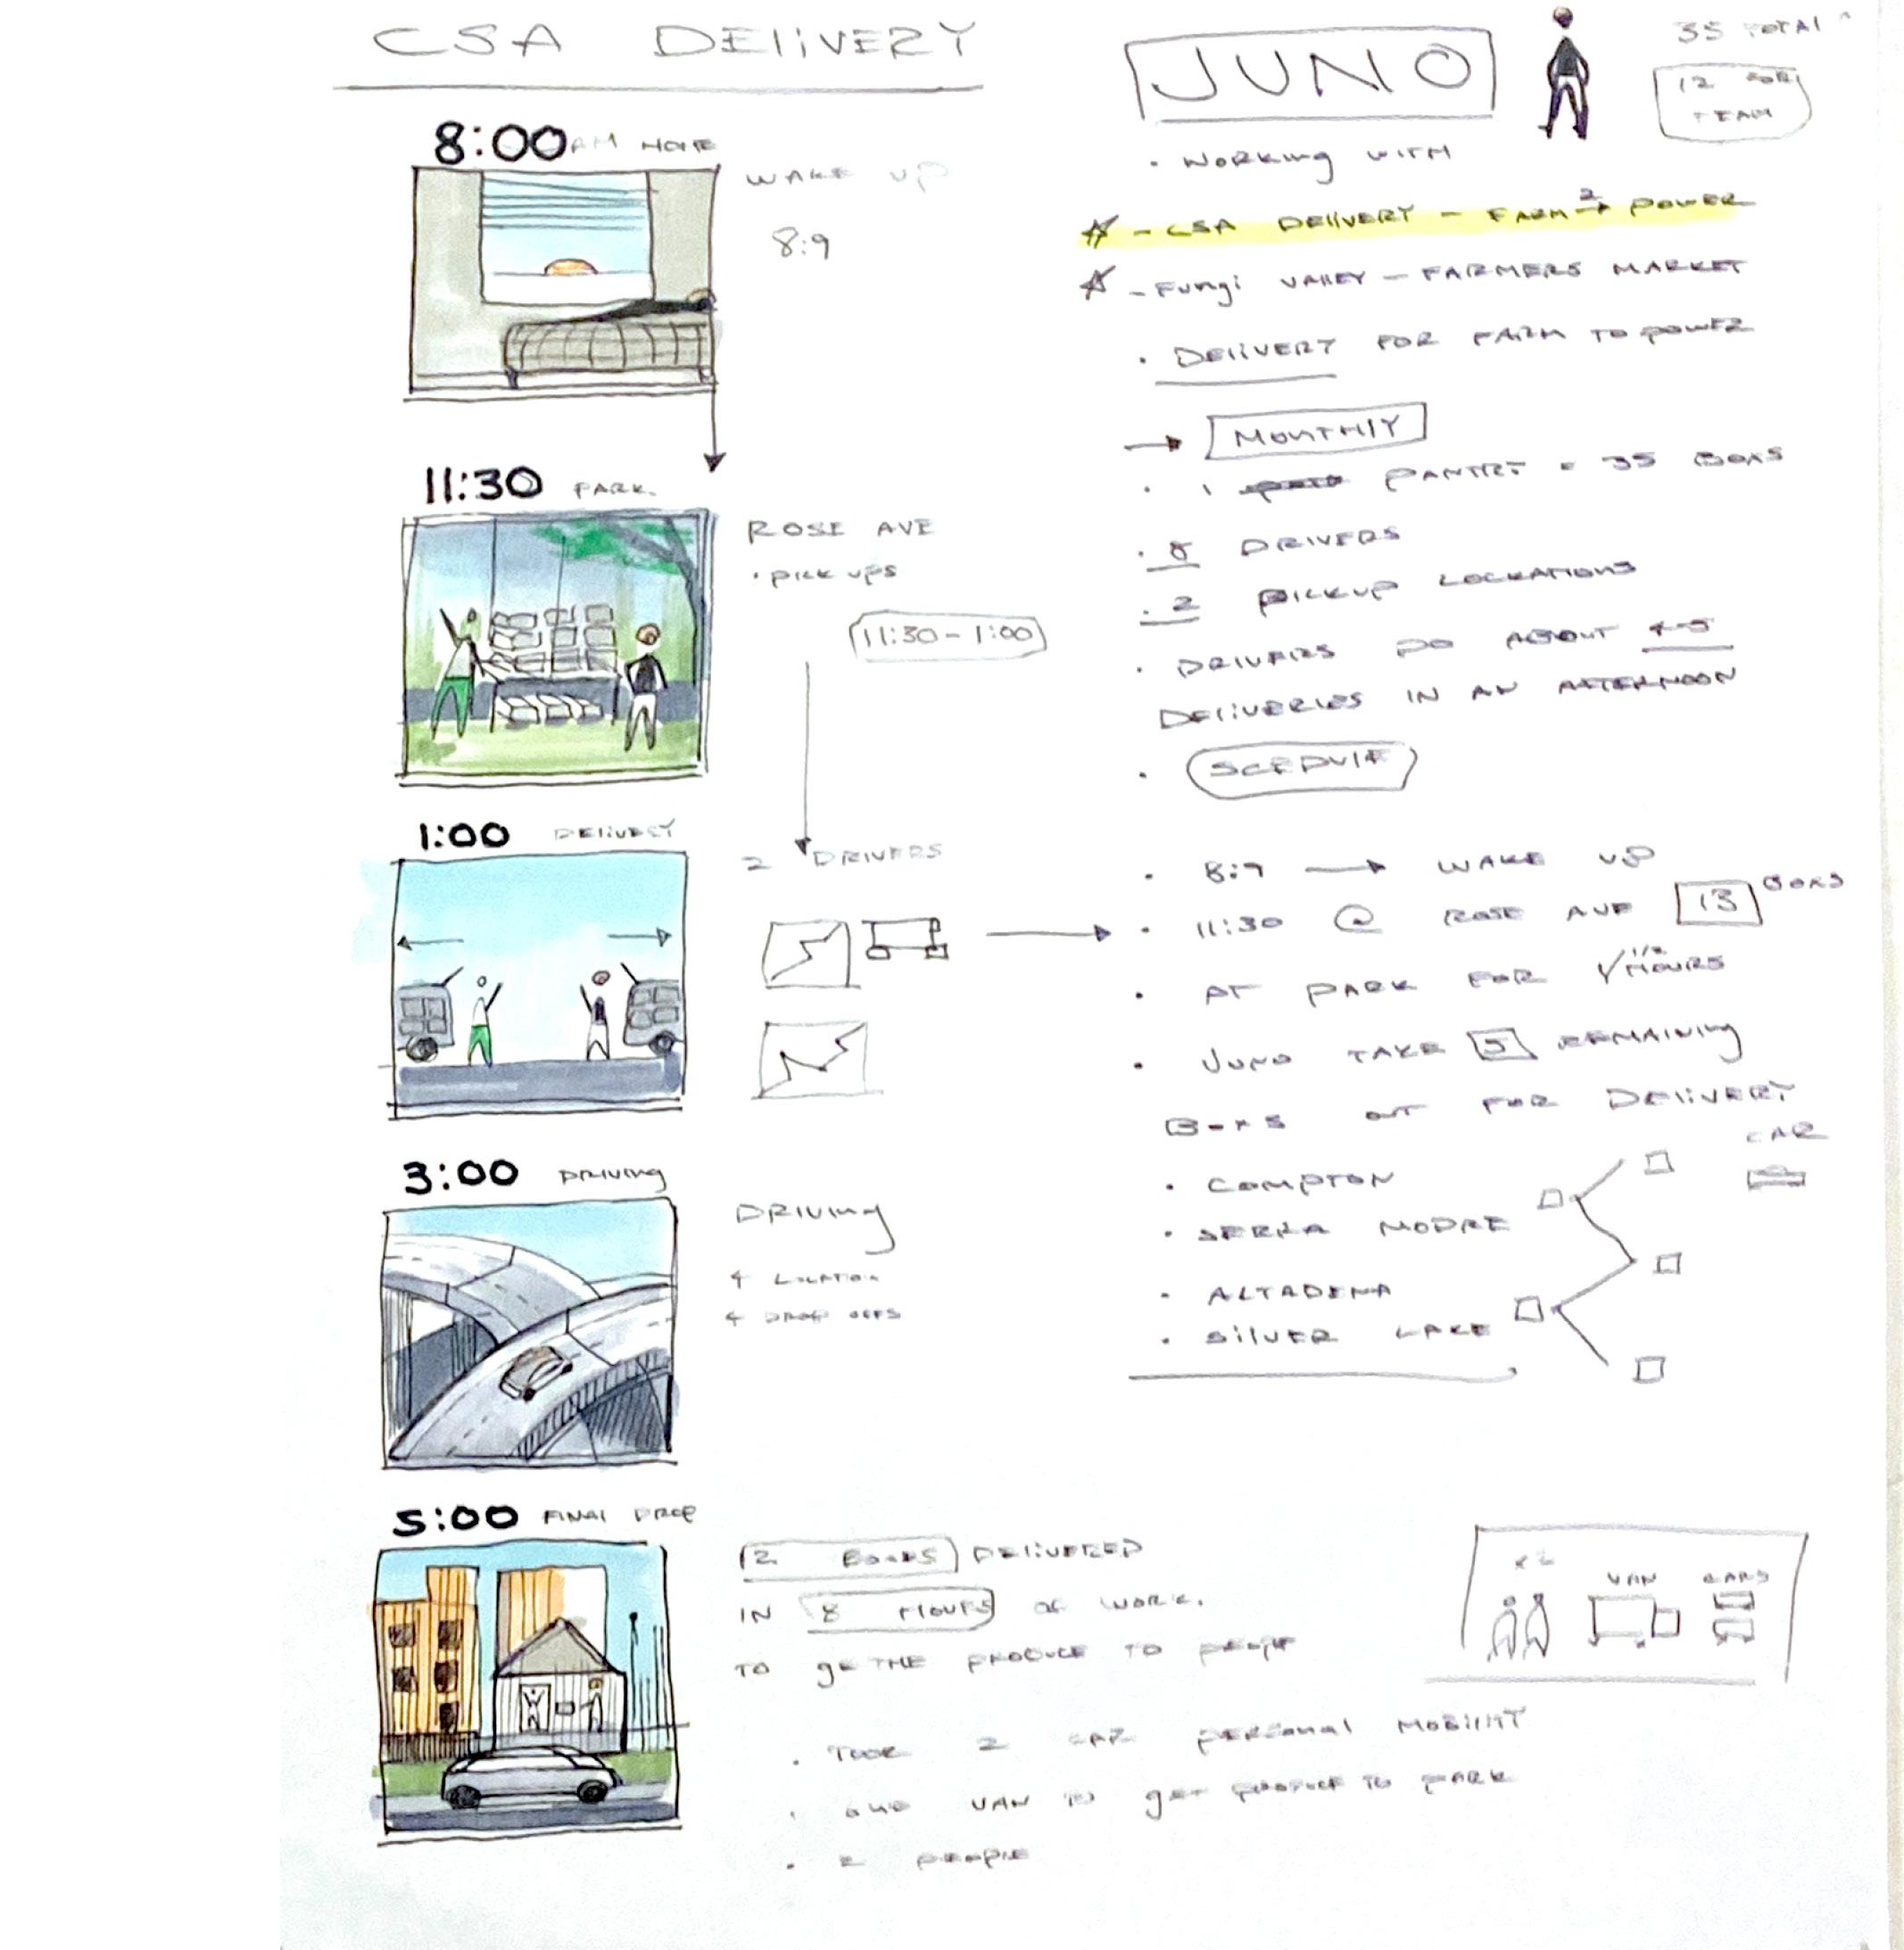 CSA DELIVERY
8:00 AM HOME
WAKE UP
8:9
11:30 PARK.
ROSE AVE
• PICK UPS
11:30 - 1:00
1:00 DELIVERY
2 DRIVERS
3:00 DRIVING
DRIVING
4 LOCATION
4 DROP OFFS
5:00 FINAL DROP
12 BOXES DELIVERED
IN 8 HOURS OF WORK.
TO GE THE PRODUCE TO PEOPLE
• TOOK 2 CAR PERSONAL MOBILITY
• ONE VAN TO GET PRODUCE TO PARK
• 2 PEOPLE
JUNO
35 TOTAL
12 FOR
TEAM
• WORKING WITH
- CSA DELIVERY - FARM 2 POWER
- FUNGI VALLEY - FARMERS MARKET
• DELIVERY FOR FARM TO POWER
MONTHLY
• 1 PANTRY = 35 BOXS
• 8 DRIVERS
• 2 PICKUP LOCKATIONS
• DRIVERS DO ABOUT 4-5
DELIVERIES IN AN AFTERNOON
• SCEDULE
• 8:9 → WAKE UP
• 11:30 @ ROSE AVE 13 BOXS
• AT PARK FOR 1 1/2 HOURS
• JUNO TAKE 5 REMAINING
BOXS OUT FOR DELIVERY
CAR
• COMPTON
• SERRA MODRE
• ALTADENA
• SILVER LAKE
x2
VAN
CARS